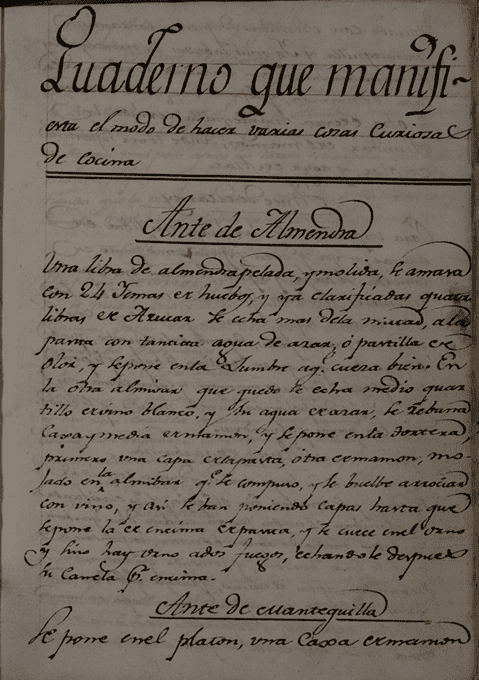 Quaderno que manifi-
esta el modo de hacer varias cosas Curiosas
de cocina
Ante de Almendra
Una libra de almendra pelada, y molida, se amasa
con 24 Yemas er huebos, y ya clarificadas quatro
libras er Azucar se echa mas dela mitad, ala
pasta con tantita agua de azar, ó pastilla er
olor, y sepone enla Lumbre aqe. cueza bien. En
la otra almivar que quedo se echa medio quar
tillo ervino blanco, y su agua er azar, se rebana
Caxa y media ermamon, y se pone enla tortera,
primero una capa erlapasta, otra ermamon, mo-
jado en la almibar qe. se compuso, y se buelbe arrociar
con vino, y asi se ban poniendo capas hasta que
sepone la er encima erpasta, y se cuece enel orno
y sino hay orno ados fuegos, echandole despues
su Canela Pr. encima.
Ante de Mantequilla
Se pone enel platon, una Caxa ermamon